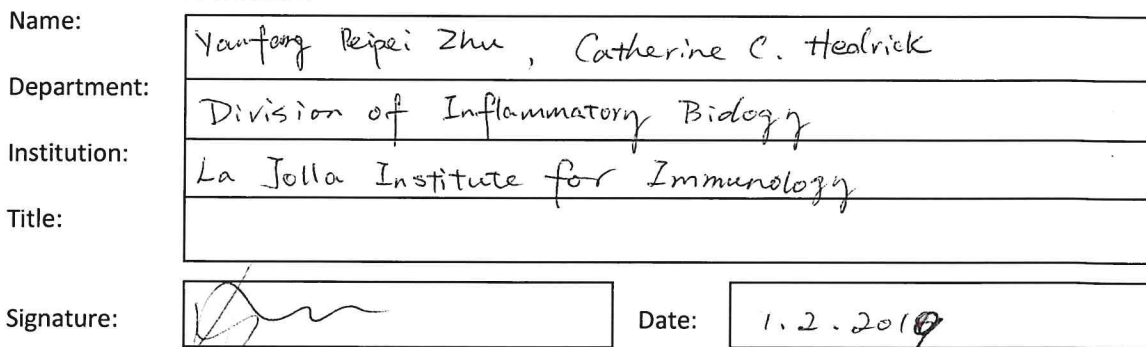 Name: Yanfang Peipei Zhu, Catherine C. Hedrick
Department: Division of Inflammatory Biology
Institution: La Jolla Institute for Immunology
Title:
Signature: Date: 1.2.2019